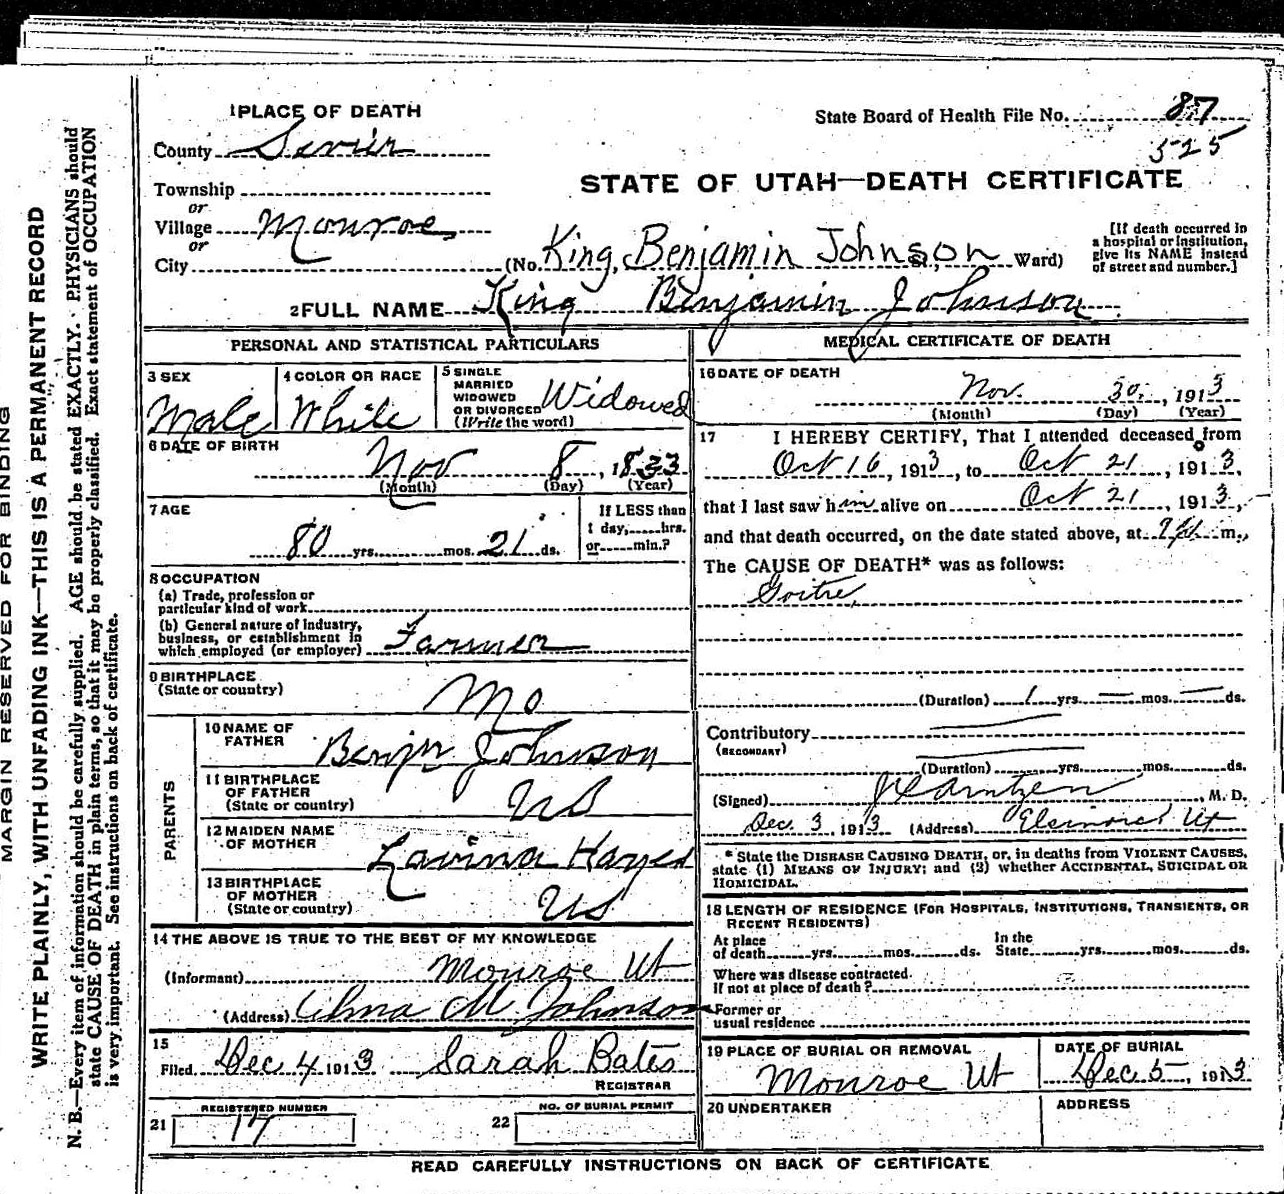 MARGIN RESERVED FOR BINDING
WRITE PLAINLY, WITH UNFADING INK—THIS IS A PERMANENT RECORD
N. B.—Every item of information should be carefully supplied. AGE should be stated EXACTLY. PHYSICIANS should
state CAUSE OF DEATH in plain terms, so that it may be properly classified. Exact statement of OCCUPATION
is very important. See instructions on back of certificate.
1 PLACE OF DEATH
State Board of Health File No. 87
525
County Sevier
STATE OF UTAH—DEATH CERTIFICATE
Township
or
Village Monroe
or
City (No. King, Benjamin Johnson Ward)
[If death occurred in
a hospital or institution,
give its NAME instead
of street and number.]
2 FULL NAME King Benjamin Johnson
PERSONAL AND STATISTICAL PARTICULARS
3 SEX
Male
4 COLOR OR RACE
White
5 SINGLE
MARRIED
WIDOWED
OR DIVORCED
(Write the word)
Widowed
6 DATE OF BIRTH
Nov 8, 1833
(Month) (Day) (Year)
7 AGE
80 yrs. mos. 21 ds.
If LESS than
1 day, hrs.
or min.?
8 OCCUPATION
(a) Trade, profession or
particular kind of work
(b) General nature of industry,
business, or establishment in
which employed (or employer) Farmer
9 BIRTHPLACE
(State or country)
Mo
PARENTS
10 NAME OF
FATHER
Benjn Johnson
11 BIRTHPLACE
OF FATHER
(State or country)
US
12 MAIDEN NAME
OF MOTHER
Lavina Hayes
13 BIRTHPLACE
OF MOTHER
(State or country)
US
14 THE ABOVE IS TRUE TO THE BEST OF MY KNOWLEDGE
(Informant) Monroe Ut
(Address) Alma M Johnson
15
Filed Dec 4 1913 Sarah Bates
REGISTRAR
REGISTERED NUMBER
21 17
NO. OF BURIAL PERMIT
22
MEDICAL CERTIFICATE OF DEATH
16 DATE OF DEATH
Nov. 30, 1913
(Month) (Day) (Year)
17 I HEREBY CERTIFY, That I attended deceased from
Oct 16, 1913, to Oct 21, 1913,
that I last saw him alive on Oct 21, 1913,
and that death occurred, on the date stated above, at m.,
The CAUSE OF DEATH* was as follows:
Goitre,
(Duration) 1 yrs. — mos. — ds.
Contributory
(SECONDARY)
(Duration) yrs. mos. ds.
(Signed) M. D.
Dec. 3 1913 (Address) Elsinore Ut
* State the DISEASE CAUSING DEATH, or, in deaths from VIOLENT CAUSES,
state (1) MEANS OF INJURY; and (2) whether ACCIDENTAL, SUICIDAL OR
HOMICIDAL.
18 LENGTH OF RESIDENCE (FOR HOSPITALS, INSTITUTIONS, TRANSIENTS, OR
RECENT RESIDENTS)
At place
of death yrs. mos. ds.
In the
State yrs. mos. ds.
Where was disease contracted.
If not at place of death?
Former or
usual residence
19 PLACE OF BURIAL OR REMOVAL
Monroe Ut
DATE OF BURIAL
Dec 5, 1913
20 UNDERTAKER
ADDRESS
READ CAREFULLY INSTRUCTIONS ON BACK OF CERTIFICATE